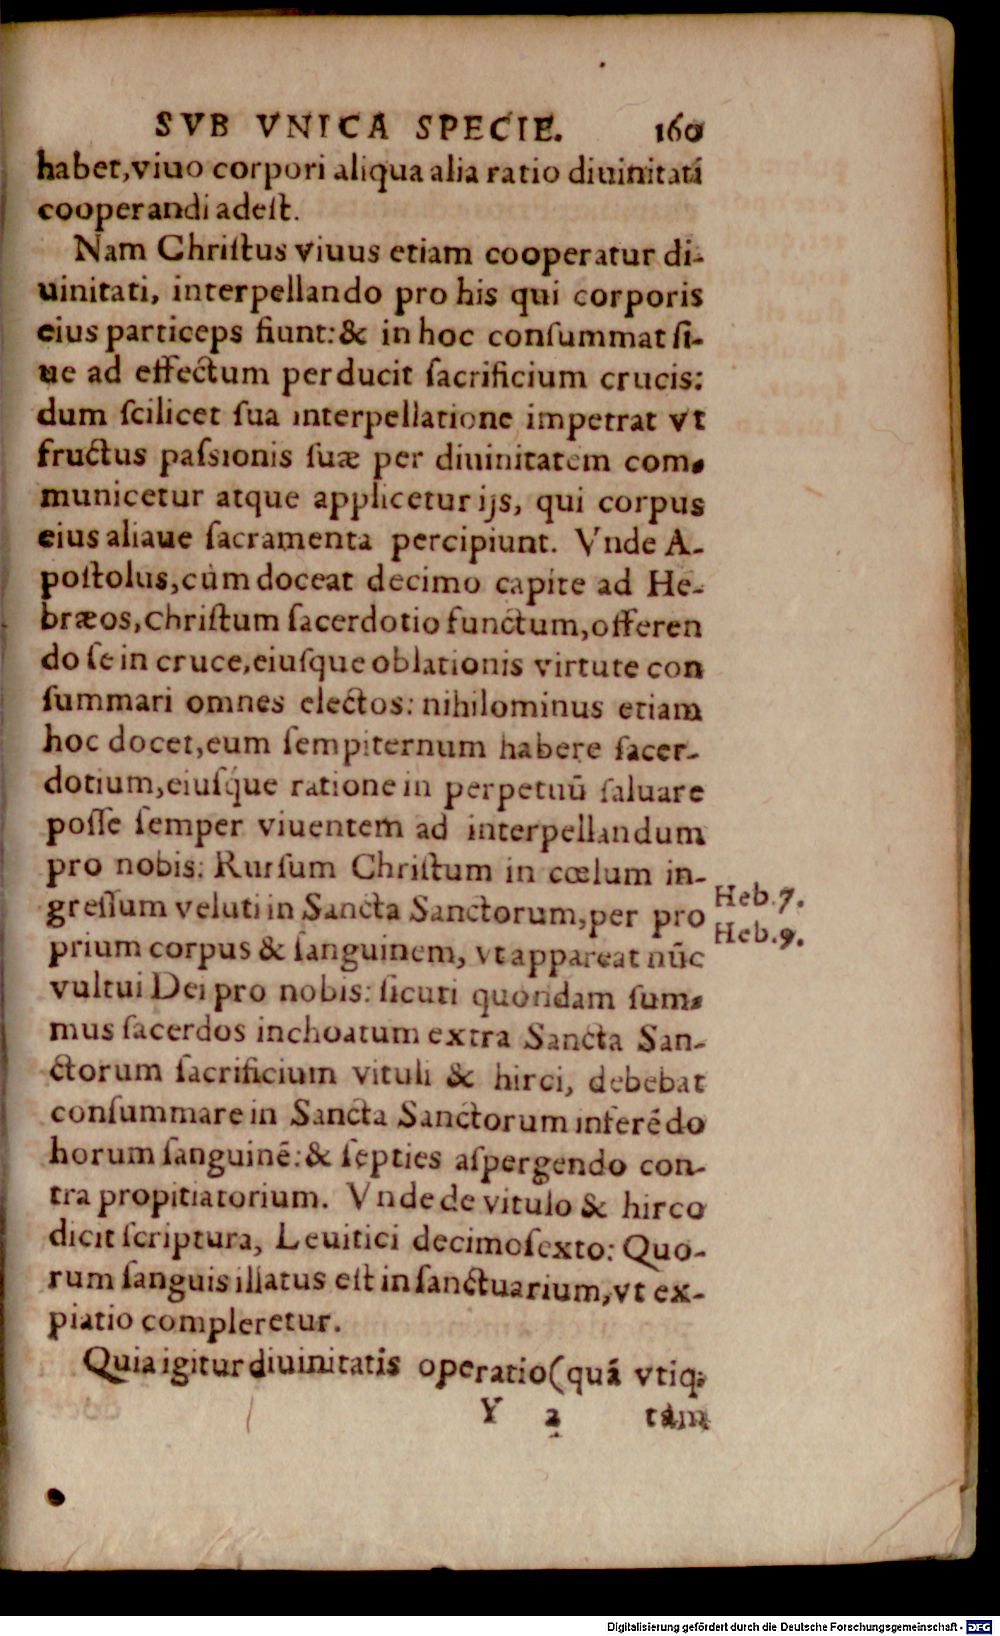 SVB VNICA SPECIE. 160
habet, viuo corpori aliqua alia ratio diuinitati
cooperandi adeſt.
Nam Chriſtus viuus etiam cooperatur di-
uinitati, interpellando pro his qui corporis
eius particeps fiunt: & in hoc conſummat ſi-
ue ad effectum perducit ſacrificium crucis:
dum ſcilicet ſua interpellatione impetrat vt
fructus paſsionis ſuæ per diuinitatem com-
municetur atque applicetur ijs, qui corpus
eius aliaue ſacramenta percipiunt. Vnde A-
poſtolus, cùm doceat decimo capite ad He-
bræos, Chriſtum ſacerdotio functum, offeren
do ſe in cruce, eiuſque oblationis virtute con
ſummari omnes electos: nihilominus etiam
hoc docet, eum ſempiternum habere ſacer-
dotium, eiuſq́ue ratione in perpetuū ſaluare
poſſe ſemper viuentem ad interpellandum
pro nobis: Rurſum Chriſtum in cœlum in-
greſſum veluti in Sancta Sanctorum, per pro
Heb. 7.
prium corpus & ſanguinem, vt appareat nūc
Heb. 9.
vultui Dei pro nobis: ſicuti quondam ſum-
mus ſacerdos inchoatum extra Sancta San-
ctorum ſacrificium vituli & hirci, debebat
conſummare in Sancta Sanctorum inferēdo
horum ſanguinē: & ſepties aſpergendo con-
tra propitiatorium. Vnde de vitulo & hirco
dicit ſcriptura, Leuitici decimoſexto: Quo-
rum ſanguis illatus eſt in ſanctuarium, vt ex-
piatio compleretur.
Quia igitur diuinitatis operatio (quā vtiq;
Y 2 tam
Digitalisierung gefördert durch die Deutsche Forschungsgemeinschaft - DFG